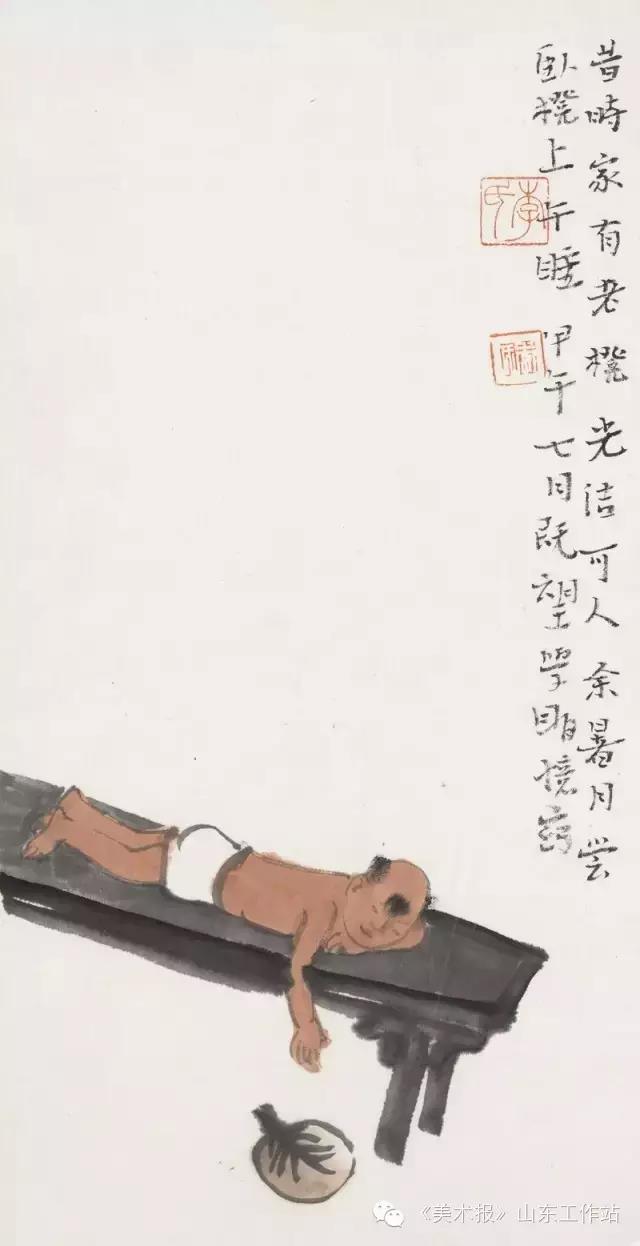 昔時家有老櫈光洁可人余暑月尝
卧櫈上午睡 甲午七月既望学明
李氏
《美术报》山东工作站